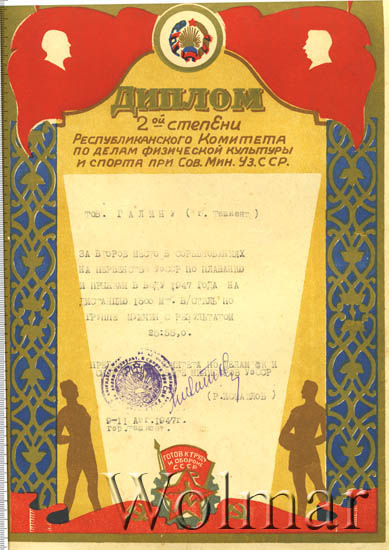 ДИПЛОМ
2ОЙ СТЕПЕНИ
РЕСПУБЛИКАНСКОГО КОМИТЕТА
ПО ДЕЛАМ ФИЗИЧЕСКОЙ КУЛЬТУРЫ
И СПОРТА ПРИ СОВ. МИН. УЗ.ССР.
тов. ГАЛИНУ (г. Ташкент)
ЗА ВТОРОЕ МЕСТО В СОРЕВНОВАНИЯХ
НА ПЕРВЕНСТВО УзССР ПО ПЛАВАНИЮ
И ПРЫЖКАМ В ВОДУ 1947 ГОДА НА
ДИСТАНЦИЮ 1500 МТ. В/СТИЛЬ ПО
ГРУППЕ МУЖЧИН С РЕЗУЛЬТАТОМ
25:55,0.
КОМИТЕТА ПО ДЕЛАМ ФК И
УзССР
9-11 Авг. 1947г.
гор. Ташкент.
ГОТОВ К ТРУДУ
И ОБОРОНЕ
СССР
Wolmar